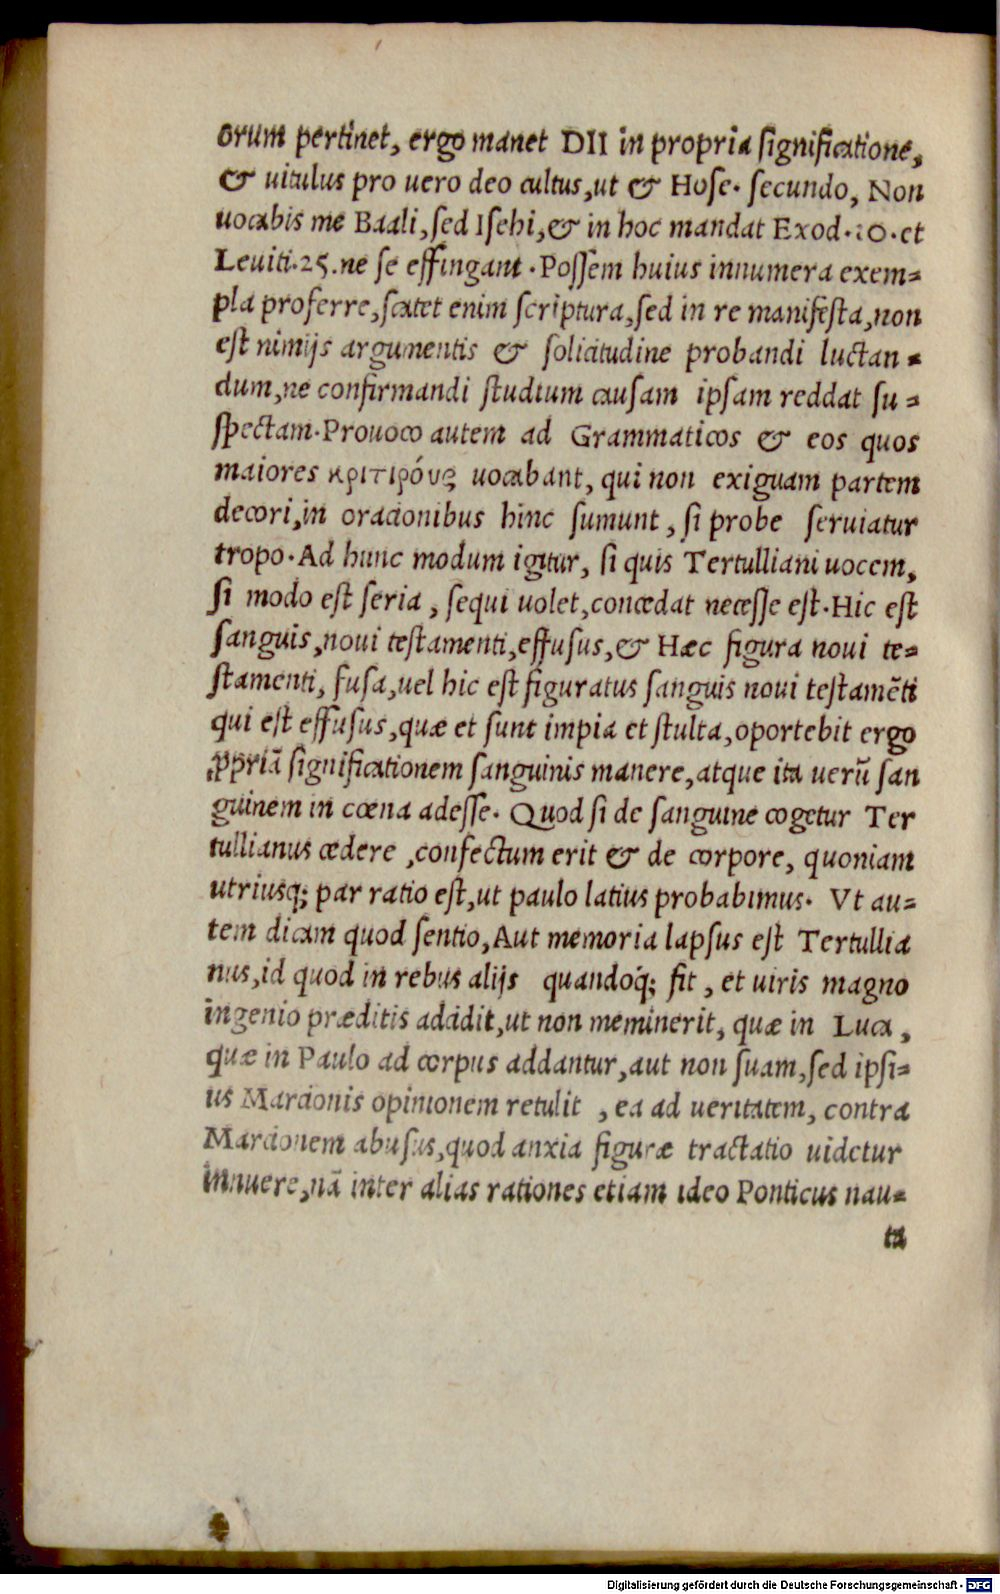 orum pertinet, ergo manet DII in propria significatione,
& uitulus pro uero deo cultus, ut & Hose. secundo, Non
uocabis me Baali, sed Isehi, & in hoc mandat Exod. 20. et
Leuiti. 25. ne se effingant. Possem huius innumera exem=
pla proferre, scatet enim scriptura, sed in re manifesta, non
est nimijs argumentis & solicitudine probandi luctan=
dum, ne confirmandi studium causam ipsam reddat su=
spectam. Prouoco autem ad Grammaticos & eos quos
maiores κριτιρόυς uocabant, qui non exiguam partem
decori, in oracionibus hinc sumunt, si probe seruiatur
tropo. Ad hunc modum igitur, si quis Tertulliani uocem,
si modo est seria, sequi uolet, concedat necesse est. Hic est
sanguis, noui testamenti, effusus, & Hæc figura noui te=
stamenti, fusa, uel hic est figuratus sanguis noui testamẽti
qui est effusus, quæ et sunt impia et stulta, oportebit ergo
ꝓpriã significationem sanguinis manere, atque ita uerũ san
guinem in cœna adesse. Quod si de sanguine cogetur Ter
tullianus cedere, confectum erit & de corpore, quoniam
utriusq; par ratio est, ut paulo latius probabimus. Vt au=
tem dicam quod sentio, Aut memoria lapsus est Tertullia
nus, id quod in rebus alijs quandoq́; fit, et uiris magno
ingenio præditis accidit, ut non meminerit, quæ in Luca,
quæ in Paulo ad corpus addantur, aut non suam, sed ipsi=
us Marcionis opinionem retulit, ea ad ueritatem, contra
Marcionem abusus, quod anxia figuræ tractatio uidetur
innuere, nã inter alias rationes etiam ideo Ponticus nau=
ta
Digitalisierung gefördert durch die Deutsche Forschungsgemeinschaft - DFG